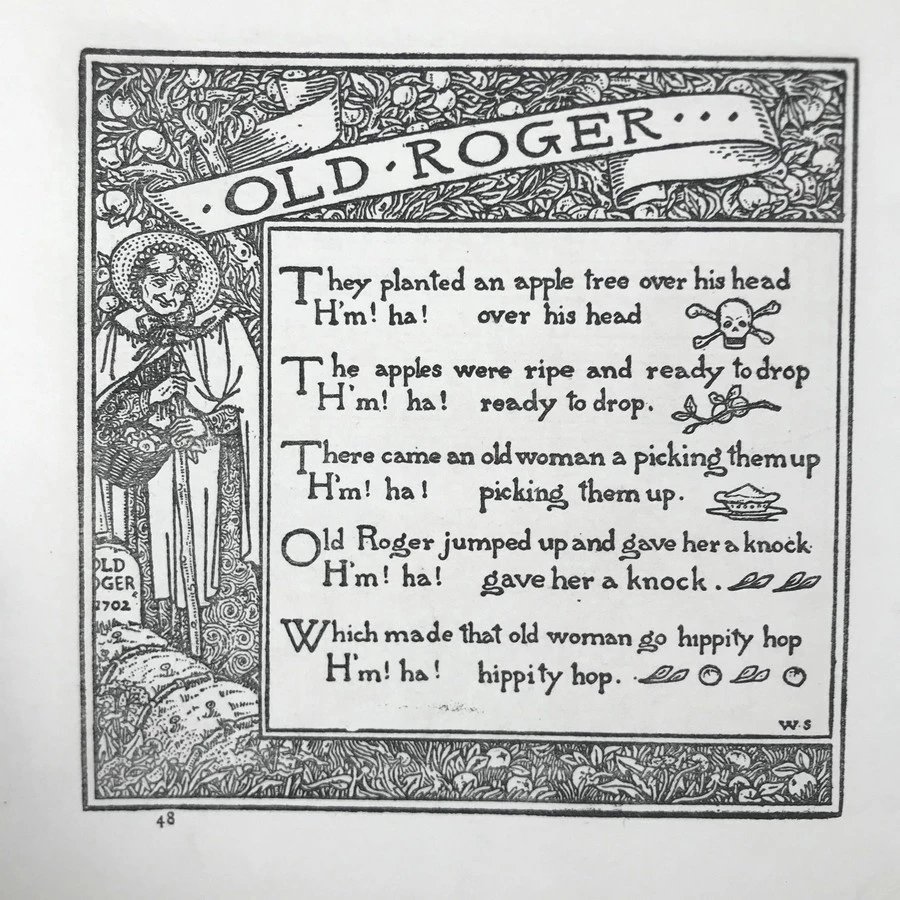 ·OLD·ROGER···
They planted an apple tree over his head
H'm! ha! over his head
The apples were ripe and ready to drop
H'm! ha! ready to drop.
There came an old woman a picking them up
H'm! ha! picking them up.
Old Roger jumped up and gave her a knock
H'm! ha! gave her a knock.
Which made that old woman go hippity hop
H'm! ha! hippity hop.
W·S
OLD
OGER
1702
48